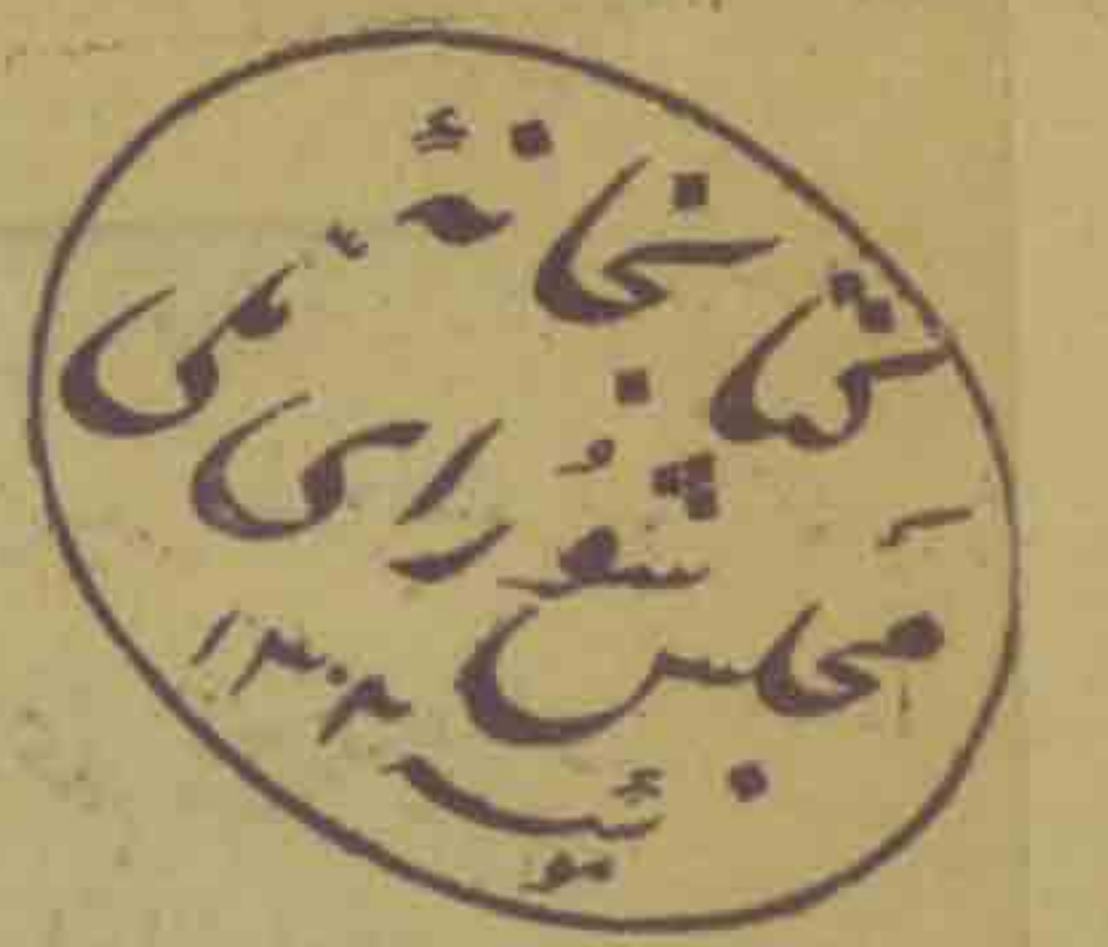 کتابخانهٔ
مجلس شورای ملی
مؤسسه ۱۳۰۴